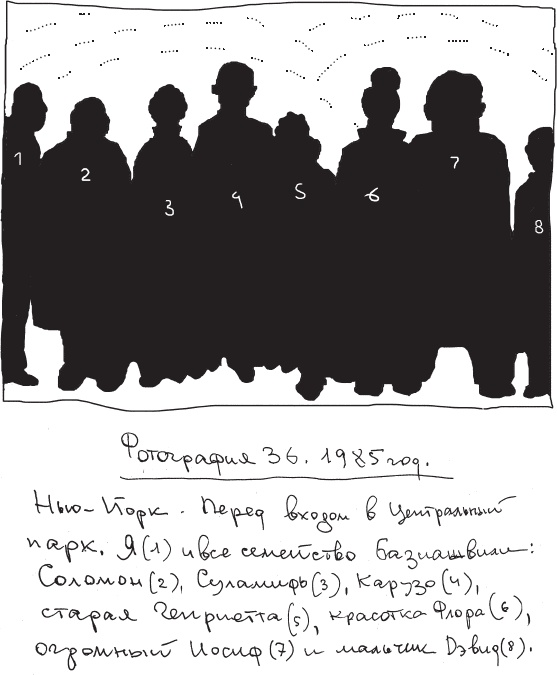 1
2
3
4
5
6
7
8
Фотография 36. 1985 год.
Нью-Йорк. Перед входом в Центральный
парк. Я (1) и все семейство Базиашвили:
Соломон (2), Суламифь (3), Карузо (4),
старая Генриетта (5), красотка Флора (6),
огромный Иосиф (7) и мальчик Дэвид (8).